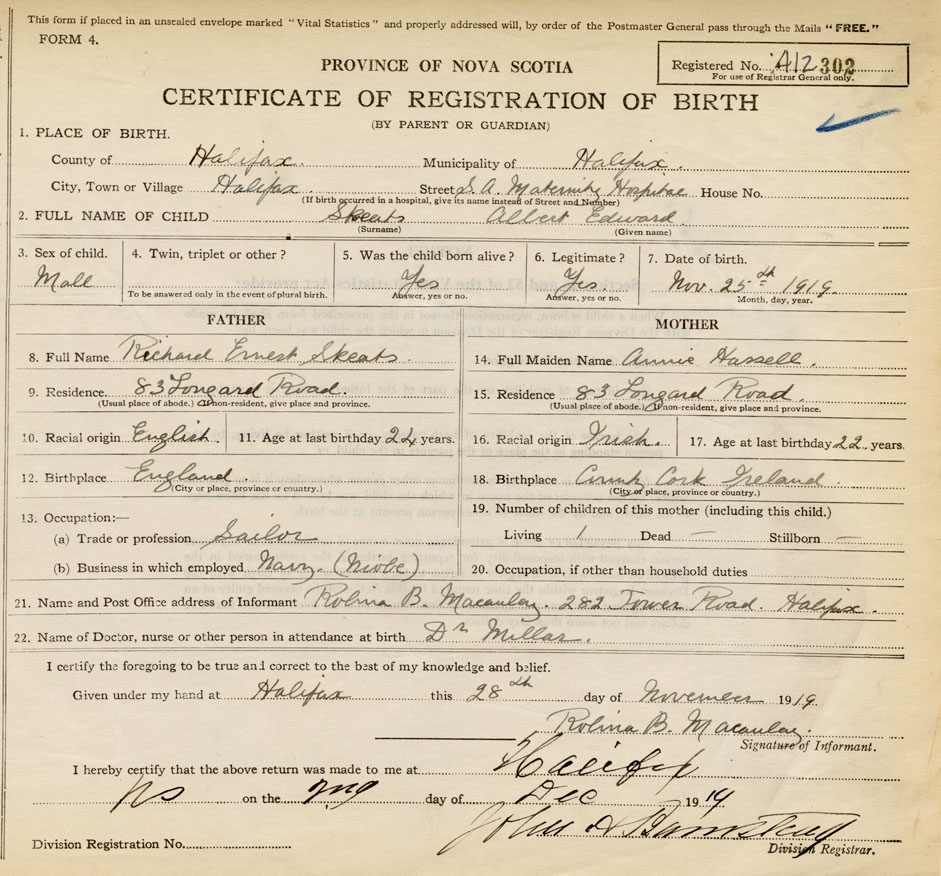 This form if placed in an unsealed envelope marked "Vital Statistics" and properly addressed will, by order of the Postmaster General pass through the Mails "FREE."
FORM 4.
Registered No. A12 302
For use of Registrar General only.
PROVINCE OF NOVA SCOTIA
CERTIFICATE OF REGISTRATION OF BIRTH
(BY PARENT OR GUARDIAN)
1. PLACE OF BIRTH.
County of Halifax. Municipality of Halifax.
City, Town or Village Halifax. Street S. A. Maternity Hospital House No.
(If birth occurred in a hospital, give its name instead of Street and Number)
2. FULL NAME OF CHILD Skeats Albert Edward
(Surname) (Given name)
3. Sex of child. 4. Twin, triplet or other? 5. Was the child born alive? 6. Legitimate? 7. Date of birth.
Male Yes Yes. Nov. 25th 1919.
To be answered only in the event of plural birth. Answer, yes or no. Answer, yes or no. Month, day, year.
FATHER MOTHER
8. Full Name Richard Ernest Skeats. 14. Full Maiden Name Annie Hassell.
9. Residence. 83 Longard Road. 15. Residence 83 Longard Road.
(Usual place of abode.) If non-resident, give place and province. (Usual place of abode.) If non-resident, give place and province.
10. Racial origin English. 11. Age at last birthday 24 years. 16. Racial origin Irish. 17. Age at last birthday 22 years.
12. Birthplace England. 18. Birthplace Cork Ireland.
(City or place, province or country.) (City or place, province or country.)
13. Occupation:— 19. Number of children of this mother (including this child.)
(a) Trade or profession Sailor Living 1 Dead — Stillborn —
(b) Business in which employed Navy. (Niobe) 20. Occupation, if other than household duties
21. Name and Post Office address of Informant Rolina B. Macaulay. 282 Tower Road. Halifax.
22. Name of Doctor, nurse or other person in attendance at birth Dr Millar.
I certify the foregoing to be true and correct to the best of my knowledge and belief.
Given under my hand at Halifax this 28th day of November 1919.
Rolina B. Macaulay.
Signature of Informant.
I hereby certify that the above return was made to me at Halifax
NS on the 2nd day of Dec 1919
John A
Division Registration No. Division Registrar.